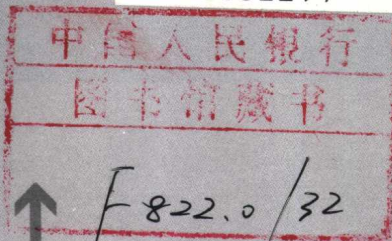 中国人民银行
图书馆藏书
F822.0/32